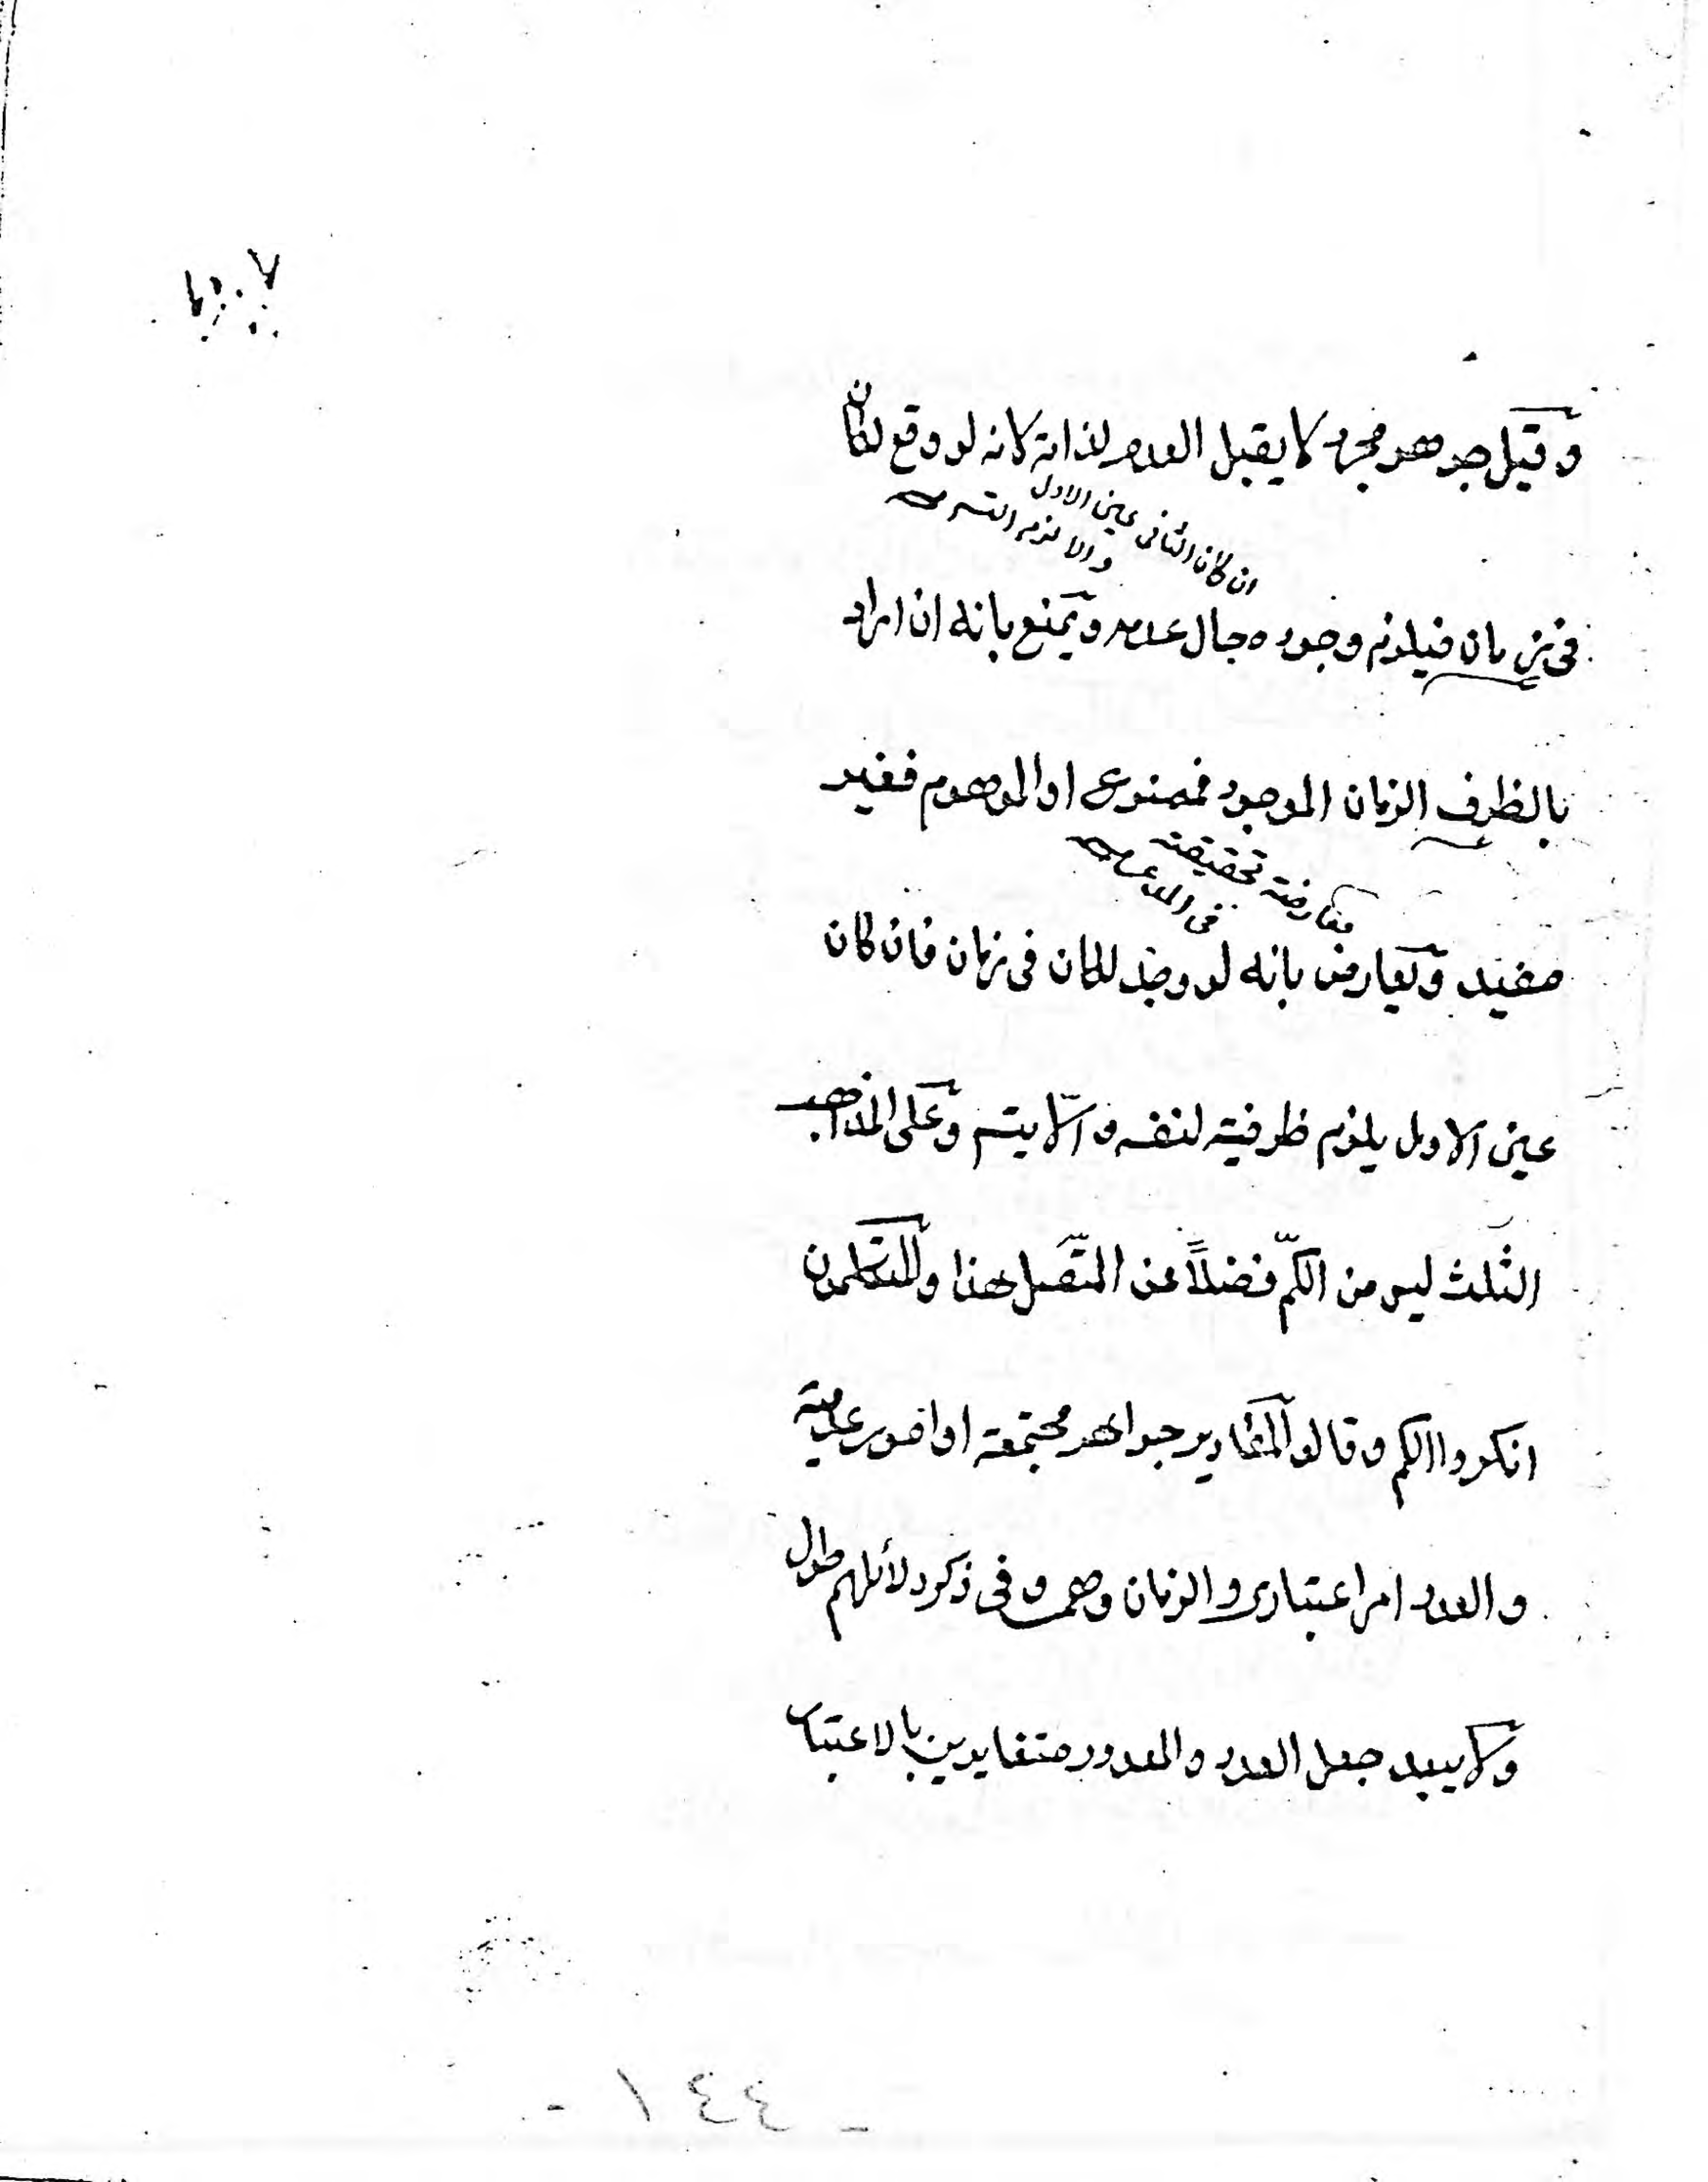 وقيل جوهر مجرد لا يقبل العدم لذاته لانه لو وقع لكان
ان كان الثاني عين الاول
والا لزم التسـ
في زمان فيلزم وجوده حال عدمه ويمنع بانه ان اراد
بالظرف الزمان الموجود فممنوع او الموهوم فغير
معارضة تحقيقية
في المدعى
مفيد ويعارض بانه لو وجد لكان في زمان فان كان
عين الاول يلزم ظرفية لنفسه والّا يتسـ وعلى المذاهب
الثلث ليس من الكمّ فضلاً عن المتّصل هذا والمتكلمون
انكروا الكم وقالوا المقادير جواهر مجتمعة او امور عدمية
والعدد امر اعتباري والزمان وهمي وفي ذكر دلائلهم طول
ولا يبعد جعل العدد والمعدود متغايرين بالاعتبار
- ٤٤١ -